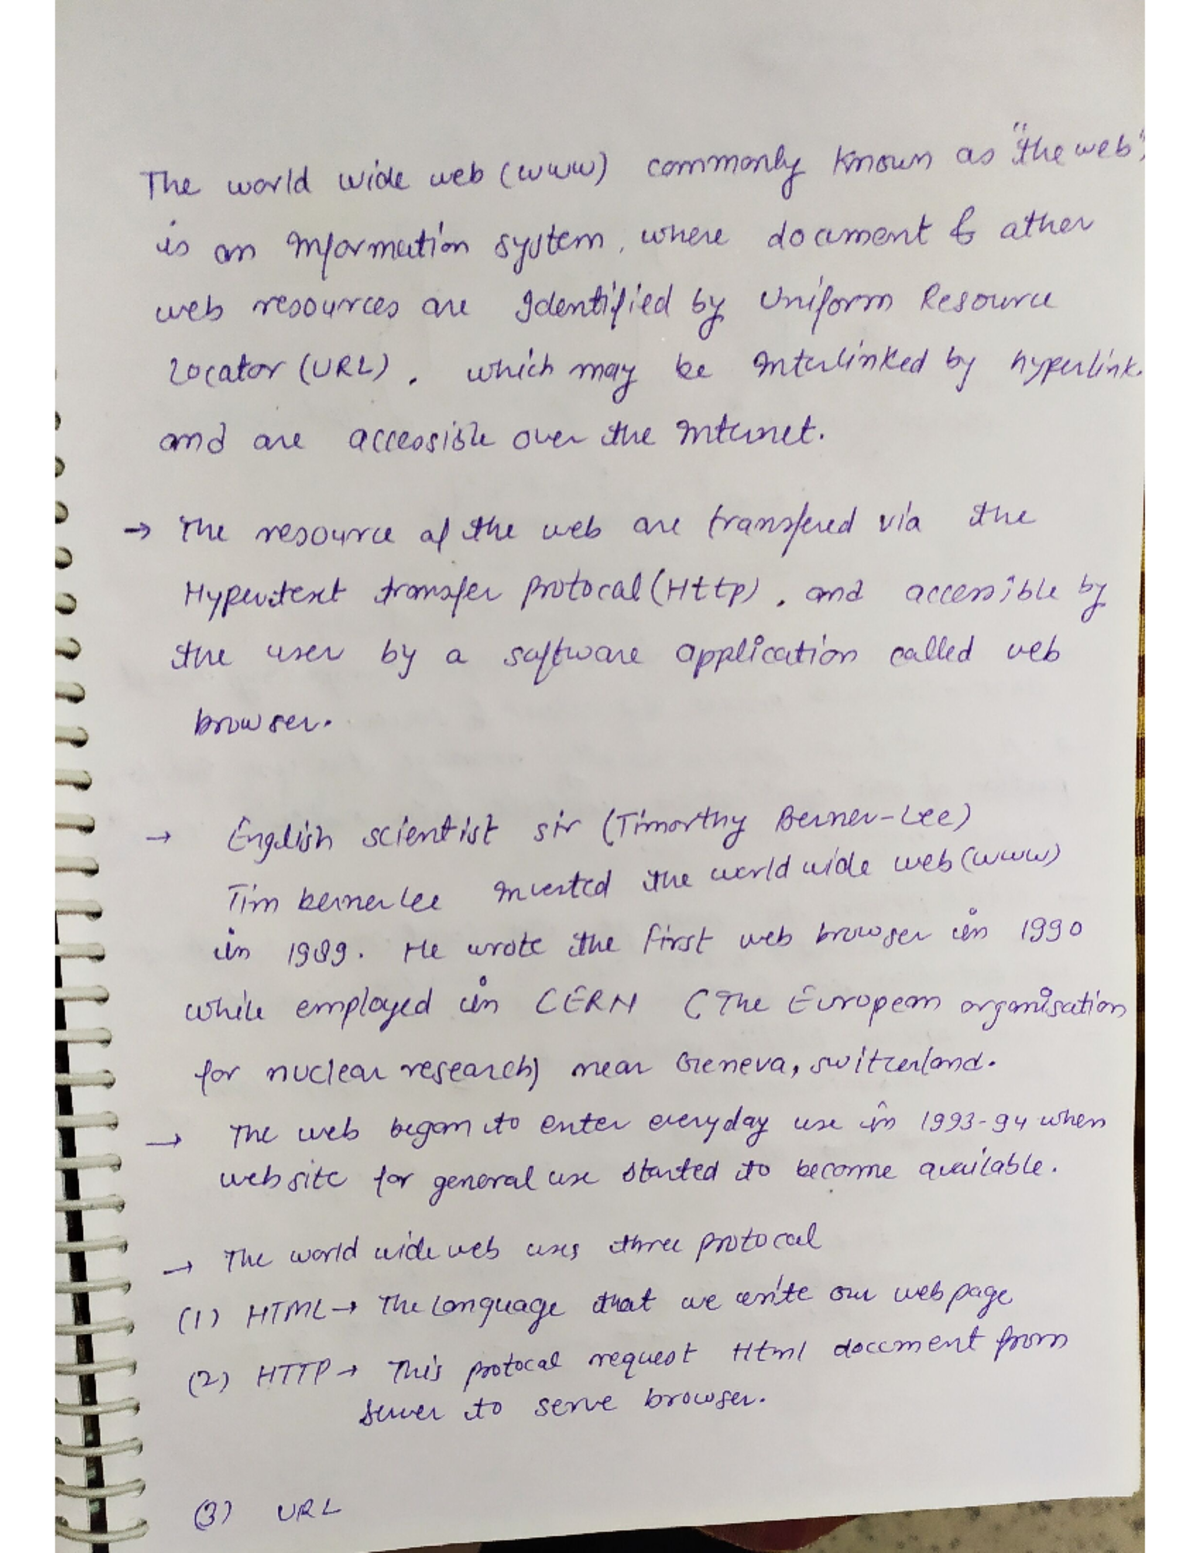 The world wide web (www) commonly known as "the web",
is an Information system, where document & other
web resources are Identified by Uniform Resource
Locator (URL), which may be Interlinked by hyperlink.
and are accessible over the Internet.
→ The resource of the web are transfered via the
Hypertext transfer protocal (Http), and accessible by
the user by a software application called web
browser.
→ English scientist sir (Timorthy Berner-Lee)
Tim berner lee Invented the world wide web (www)
in 1989. He wrote the first web browser in 1990
while employed in CERN (The European organisation
for nuclear research) near Geneva, switzerland.
→ The web began to enter everyday use in 1993-94 when
website for general use started to become available.
→ The world wide web uses three protocal
(1) HTML → The language that we write our web page
(2) HTTP → This protocal request Html document from
server to serve browser.
(3) URL